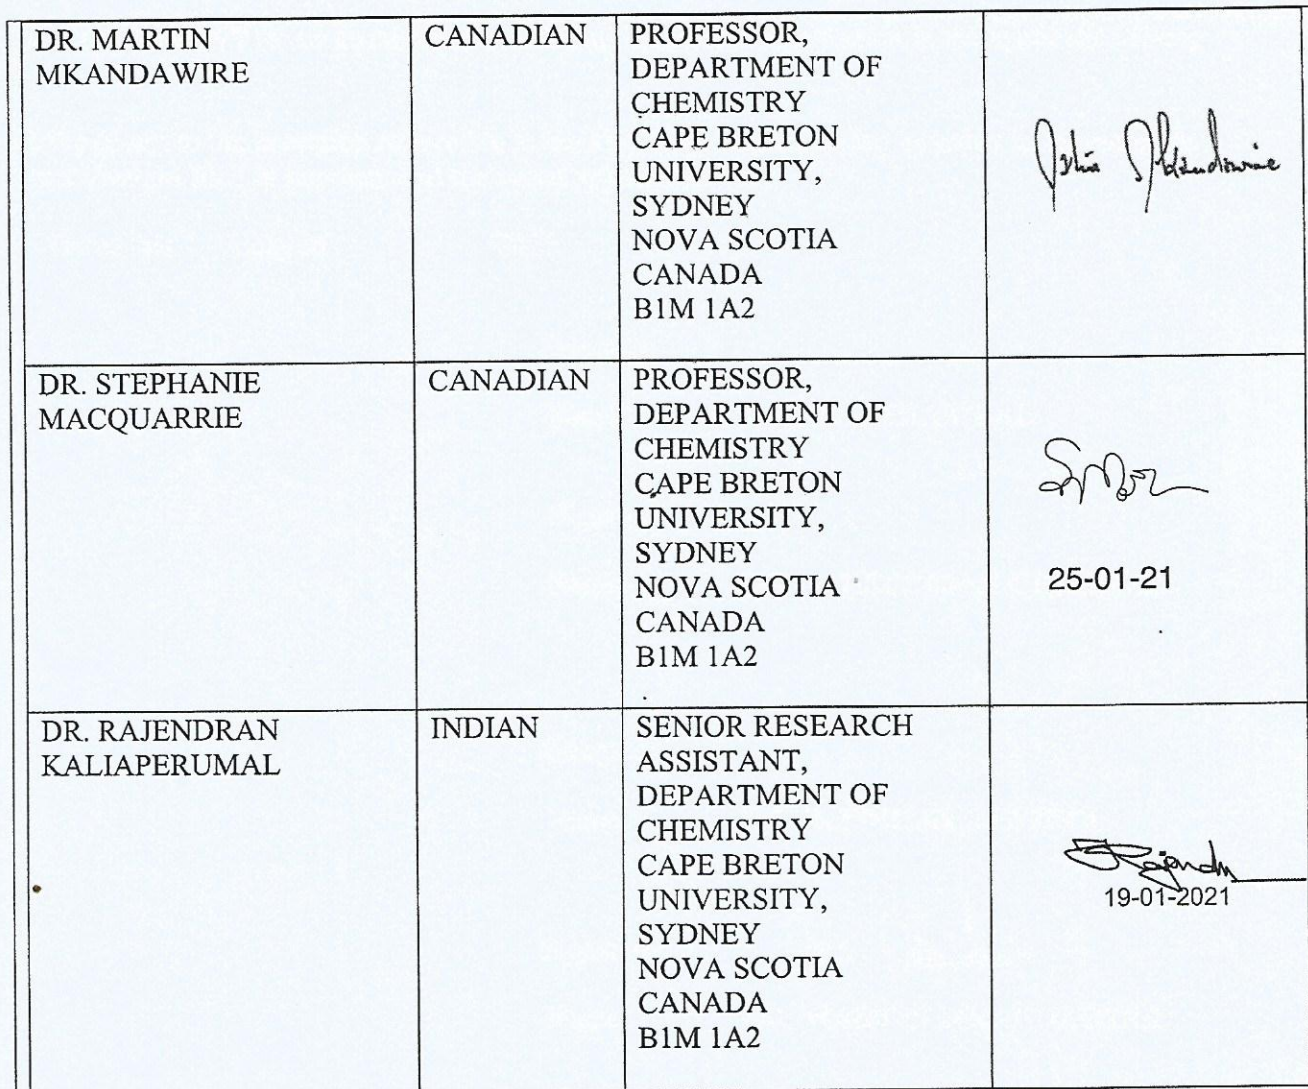 DR. MARTIN
MKANDAWIRE
CANADIAN
PROFESSOR,
DEPARTMENT OF
CHEMISTRY
CAPE BRETON
UNIVERSITY,
SYDNEY
NOVA SCOTIA
CANADA
B1M 1A2
DR. STEPHANIE
MACQUARRIE
CANADIAN
PROFESSOR,
DEPARTMENT OF
CHEMISTRY
CAPE BRETON
UNIVERSITY,
SYDNEY
NOVA SCOTIA
CANADA
B1M 1A2
25-01-21
DR. RAJENDRAN
KALIAPERUMAL
INDIAN
SENIOR RESEARCH
ASSISTANT,
DEPARTMENT OF
CHEMISTRY
CAPE BRETON
UNIVERSITY,
SYDNEY
NOVA SCOTIA
CANADA
B1M 1A2
19-01-2021